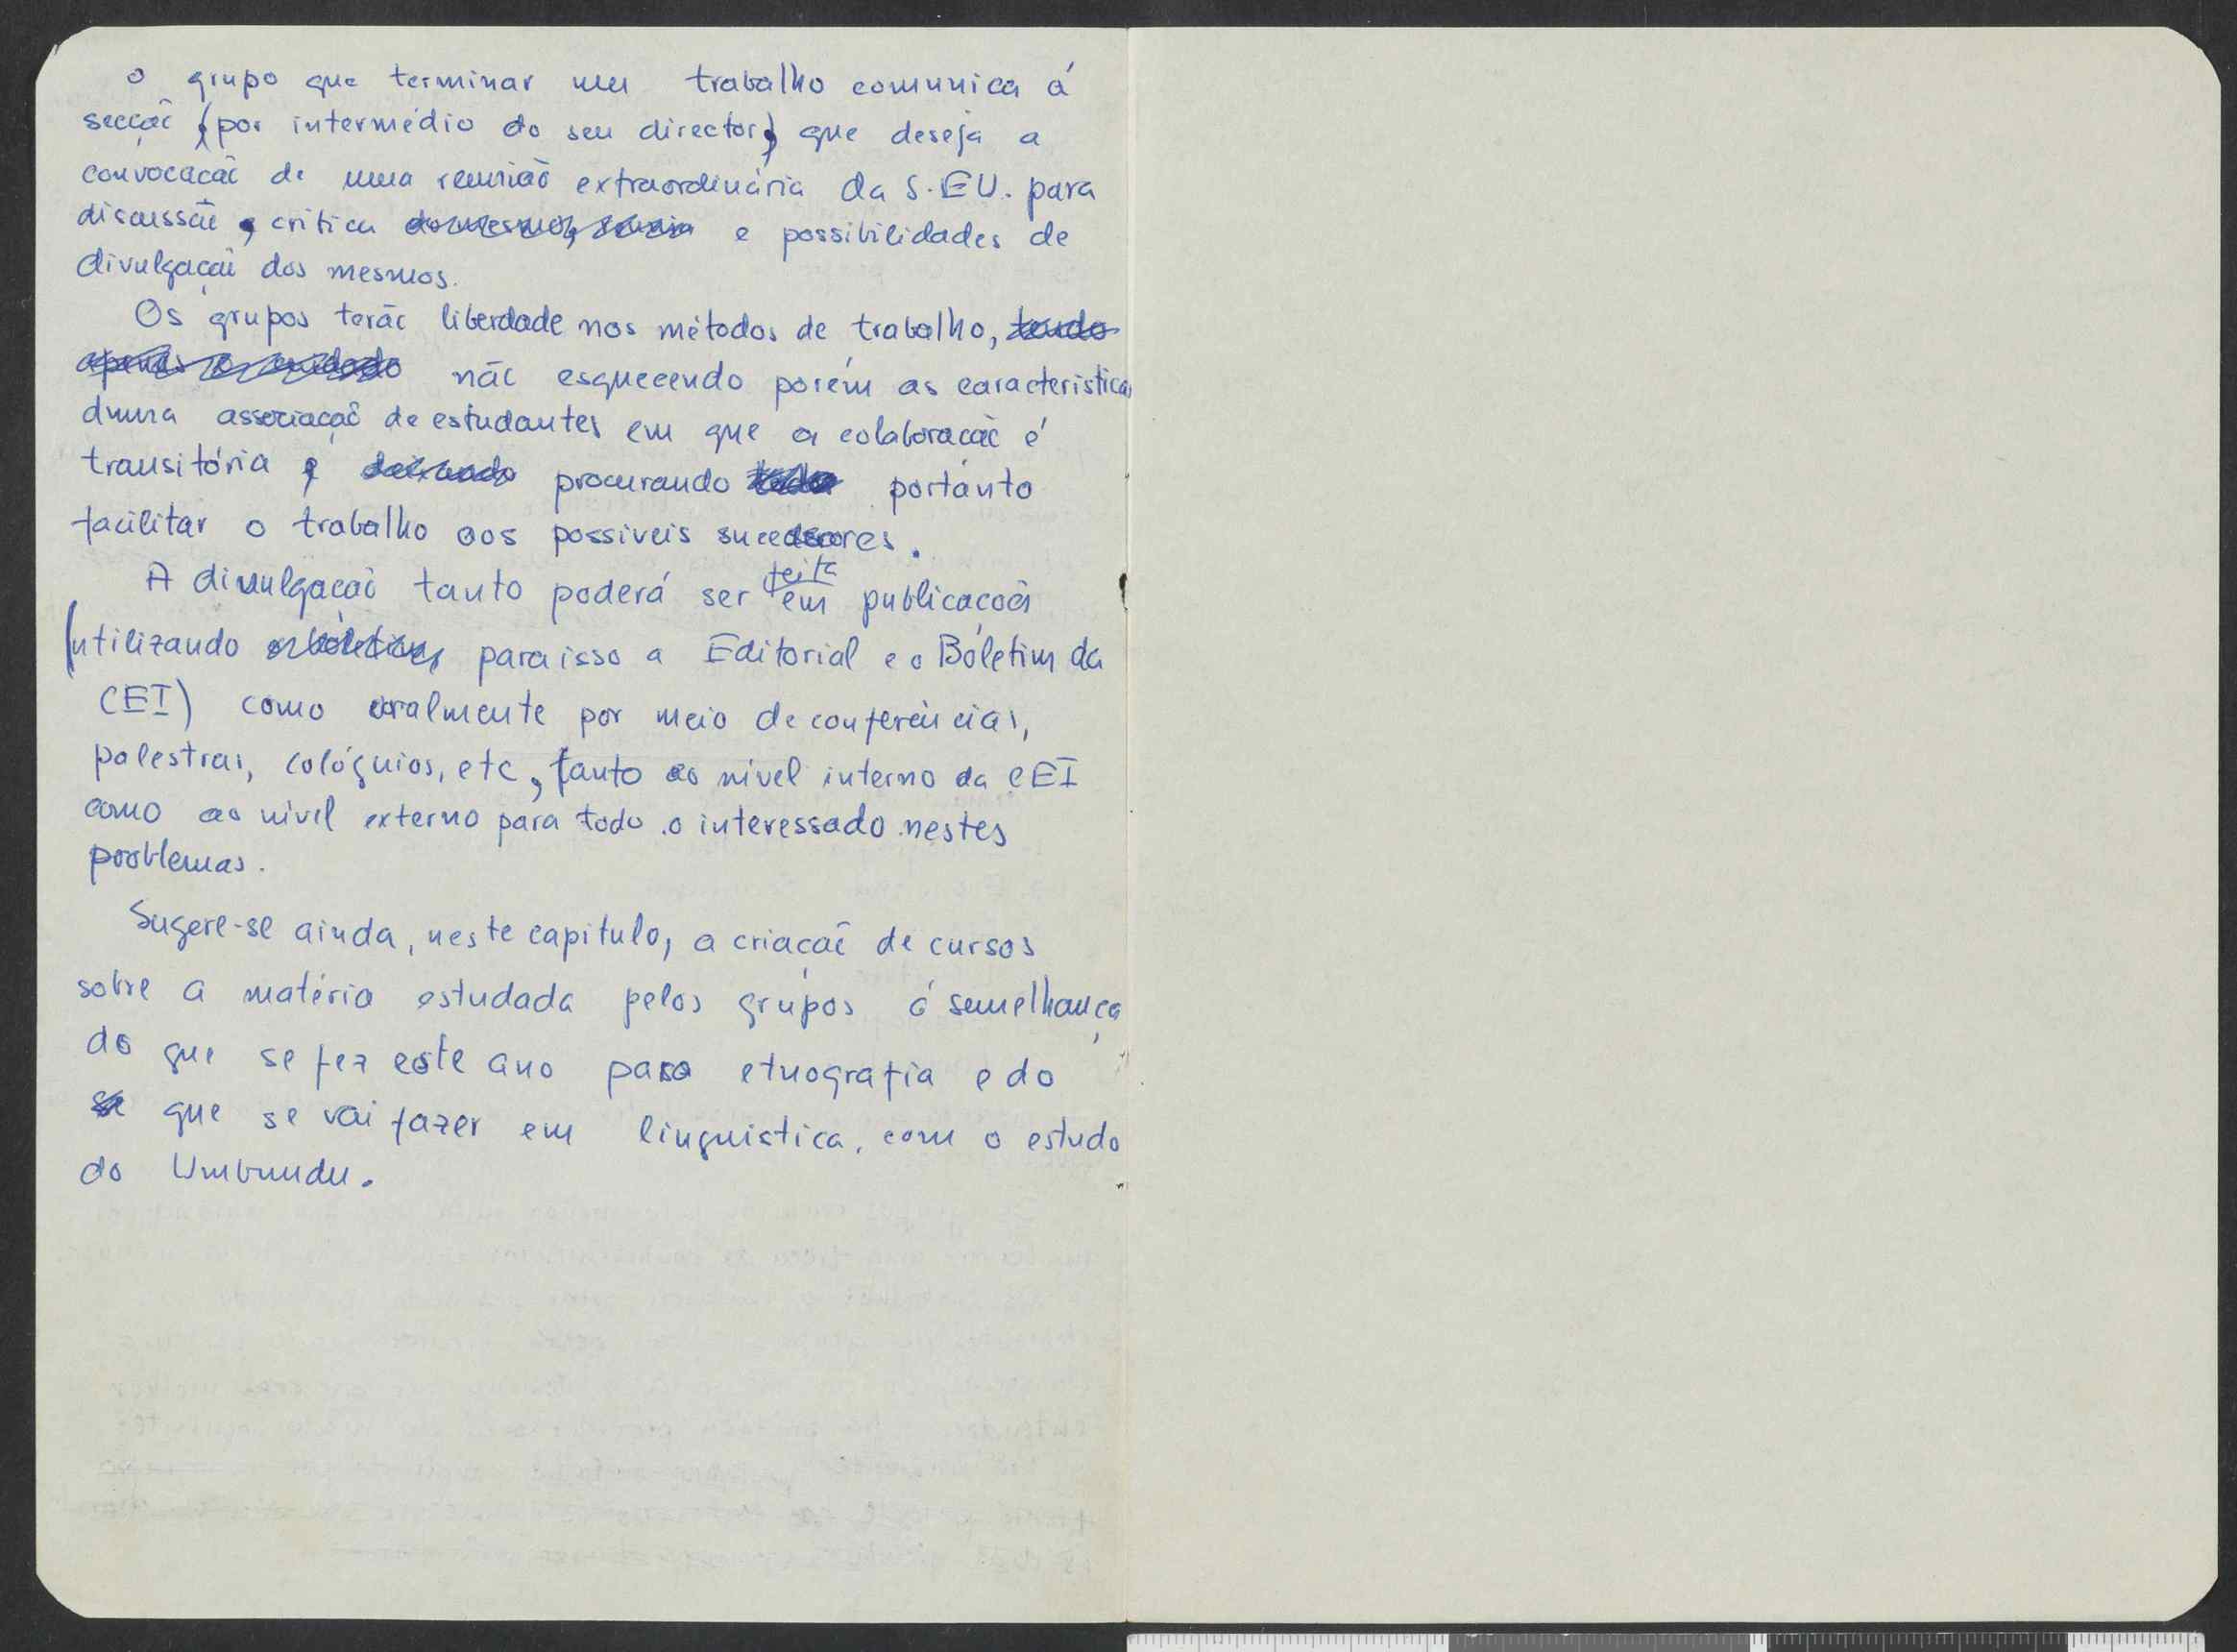 o grupo que terminar um trabalho comunica á
secção (por intermédio do seu director) que deseja a
convocação de uma reunião extraordinária da S.EU. para
discussão, critica e possibilidades de
divulgação dos mesmos.
Os grupos terão liberdade nos métodos de trabalho, tendo
apenas o cuidado não esquecendo porém as caracteristicas
duma associação de estudantes em que a colaboração é
transitória e deixando procurando portanto
facilitar o trabalho aos possiveis sucessores.
A divulgação tanto poderá ser feita em publicações
(utilizando para isso a Editorial e o Boletim da
CEI) como oralmente por meio de conferências,
palestras, colóquios, etc, tanto ao nível interno da CEI
como ao nivel externo para todo o interessado nestes
problemas.
Sugere-se ainda, neste capitulo, a criação de cursos
sobre a matéria estudada pelos grupos á semelhança
do que se fez este ano para etnografia e do
se que se vai fazer em linguistica, com o estudo
do Umbundu.